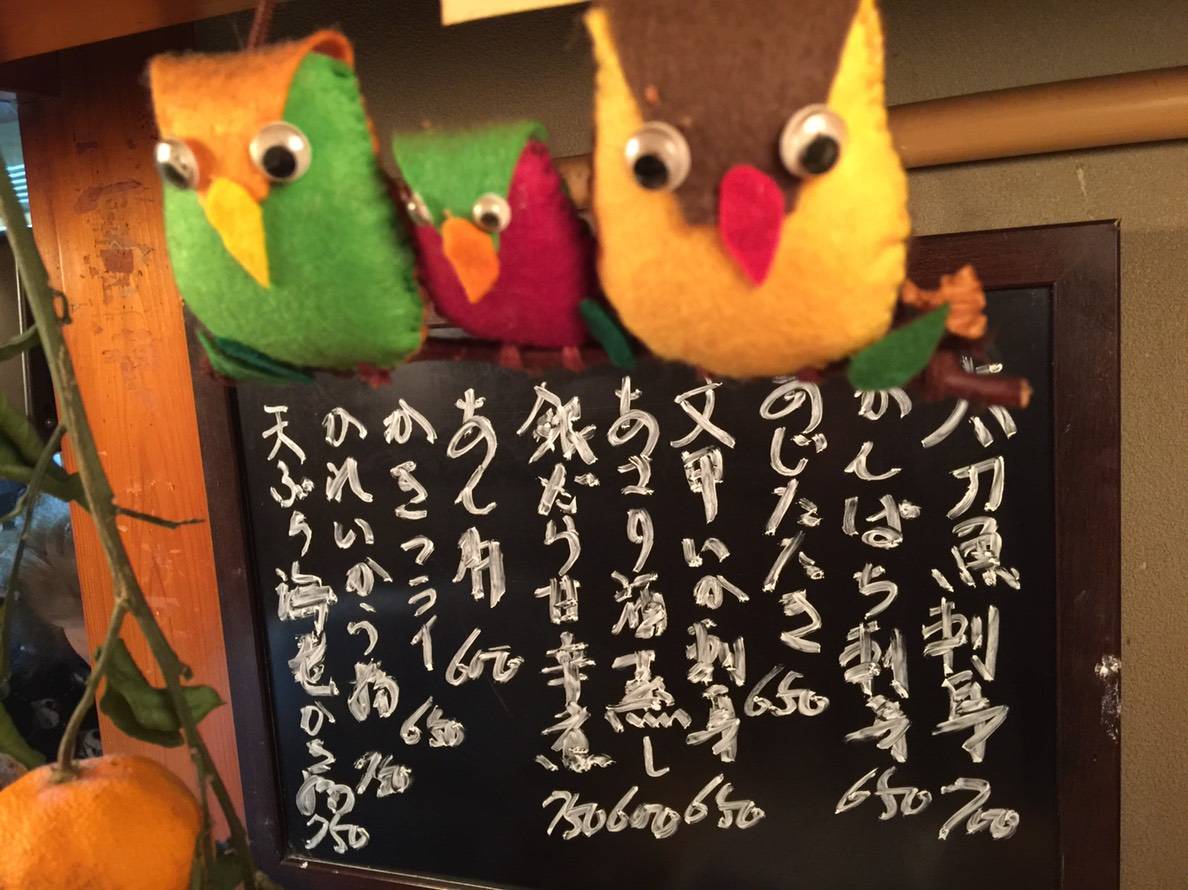 太刀魚刺身 700
かんぱち刺身 650
あじたたき 650
文甲いか刺身 650
あさり酒蒸し 600
銀だら甘辛煮 750
あん肝 600
かきフライ 650
かれいから揚 750
天ぷら海老かき 750